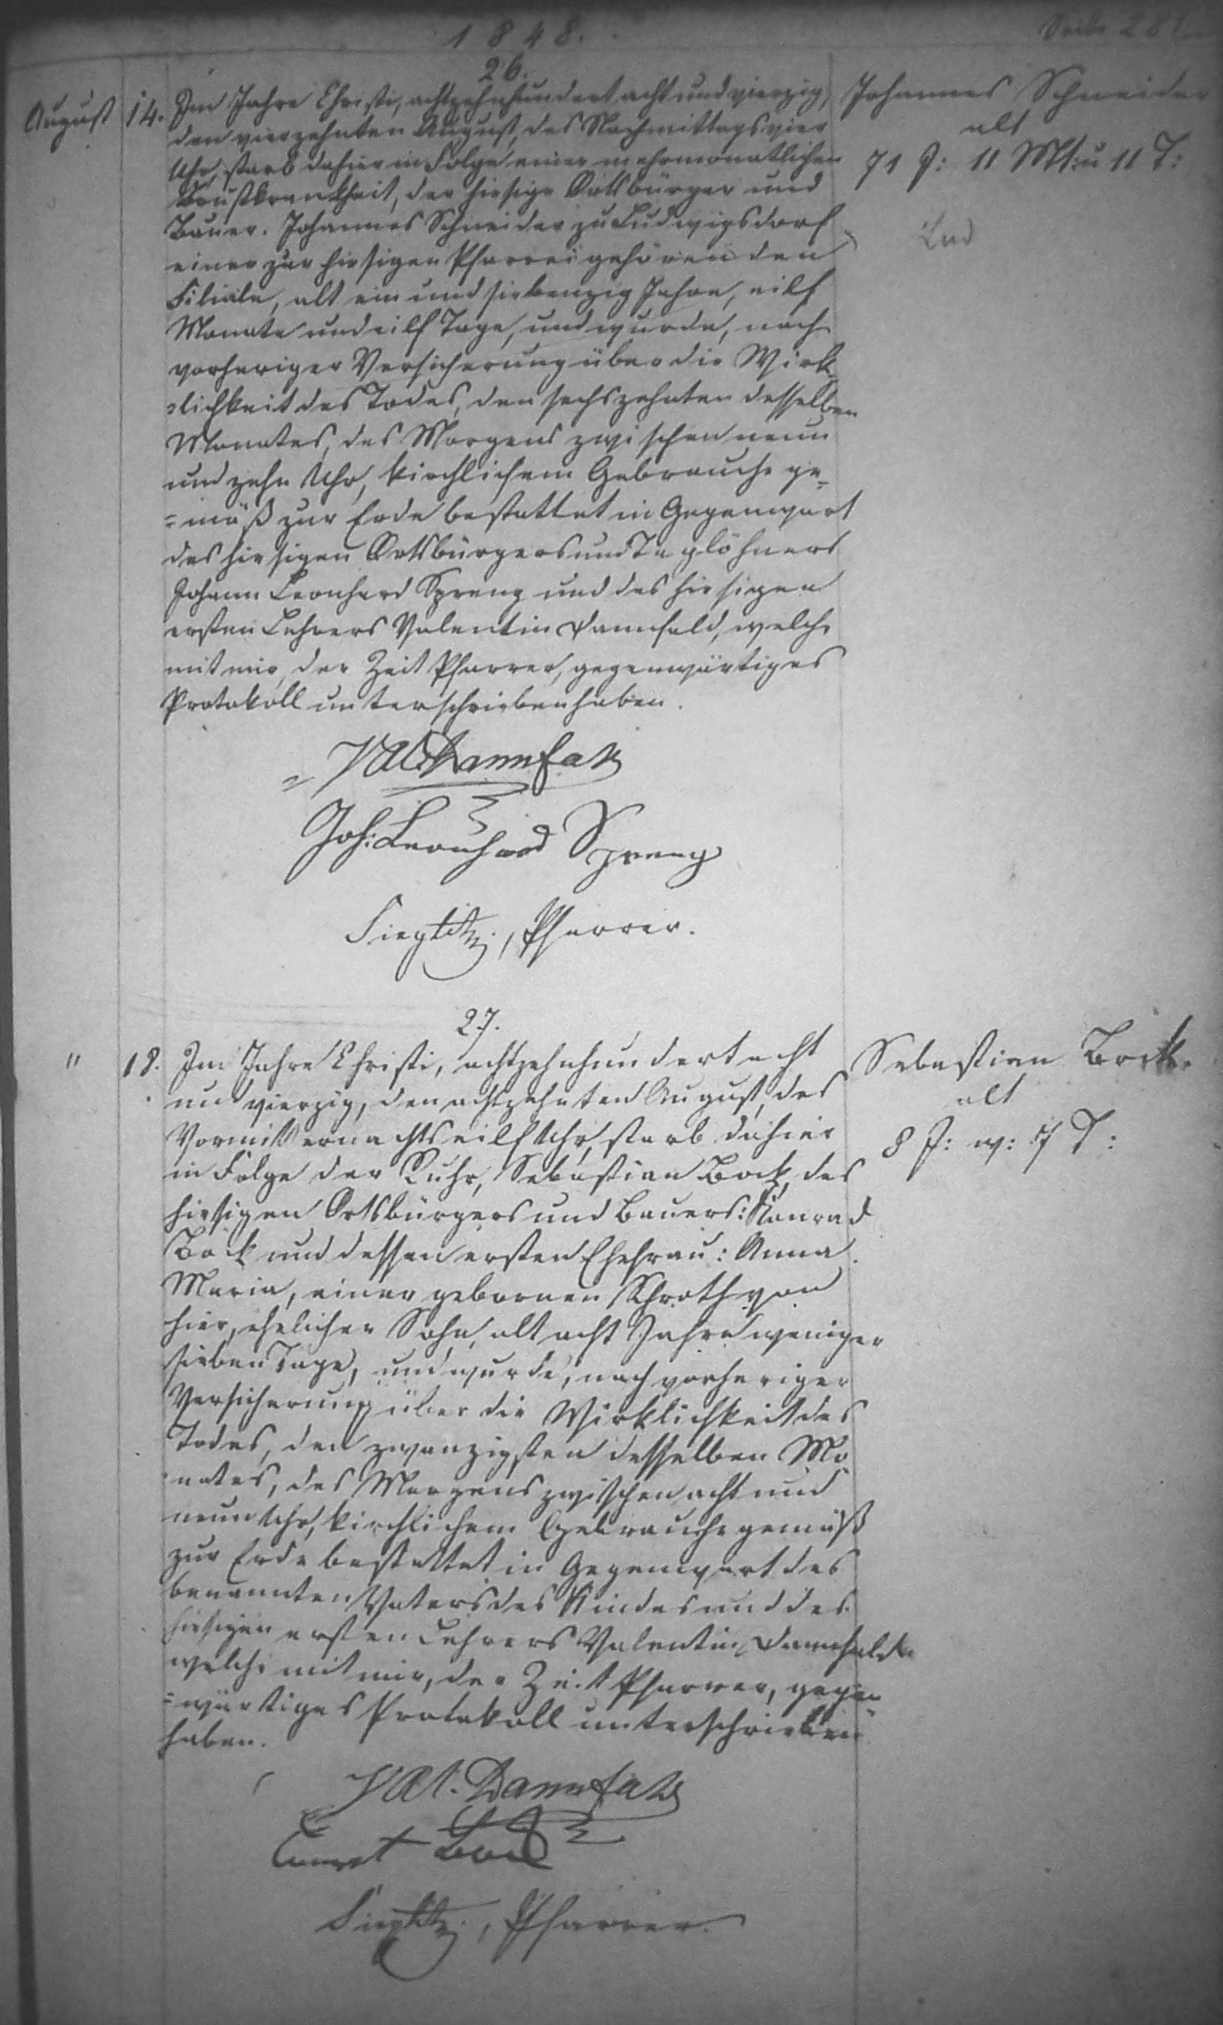 1848.
Seite 281
26.
August 14. Im Jahre Christi, achtzehnhundert acht und vierzig,
den vierzehnten August, des Nachmittags vier
Uhr, starb dahier in Folge einer mehrmonatlichen
Brustkrankheit, der hiesige Ortsbürger und
Bauer. Johannes Schneider zu Ludwigsdorf
einer zur hiesigen Pfarrei gehörenden
Filiale, alt ein und siebenzig Jahre, eilf
Monate und eilf Tage, und wurde, nach
vorheriger Versicherung über die Wirk-
=lichkeit des Todes, den sechszehnten desselben
Monates, des Morgens zwischen neun
und zehn Uhr, kirchlichem Gebrauche ge=
=mäß zur Erde bestattet in Gegenwart
des hiesigen Ortsbürgers und Taglöhners
Johann Leonhard Spreng und des hiesigen
ersten Lehrers Valentin Dannfald, welche
mit mir, der Zeit Pfarrer, gegenwärtiges
Protokoll unterschrieben haben.
Johannes Schneider
alt
71 J: 11 Mt: u 11 T:
Lud
Val. Dannfald
Joh: Leonhard Spreng
Pfarrer.
27.
" 18. Im Jahre Christi, achtzehnhundert acht
un vierzig, den achtzehnten August, des
Vormitternachts eilf Uhr, starb dahier
in Folge der Ruhr, Sebastian Bock, des
hiesigen Ortsbürgers und Bauers: Konrad
Bock und dessen ersten Ehefrau: Anna
Maria, einer gebornen Schroth von
hier, ehelicher Sohn, alt acht Jahre weniger
sieben Tage, und wurde, nach vorheriger
Versicherung über die Wirklichkeit des
Todes, den zwanzigsten desselben Mo
nates, des Morgens zwischen acht und
neun Uhr, kirchlichem Gebrauche gemäß
zur Erde bestattet in Gegenwart des
benannten Vaters des Kindes und des
hiesigen ersten Lehrers Valentin Dannfald
welche mit mir, der Zeit Pfarrer, gegen
=wärtiges Protokoll unterschrieben
haben.
Sebastian Bock.
alt
8 J: w: 7 T:
Val. Dannfald
Bock
Pfarrer.